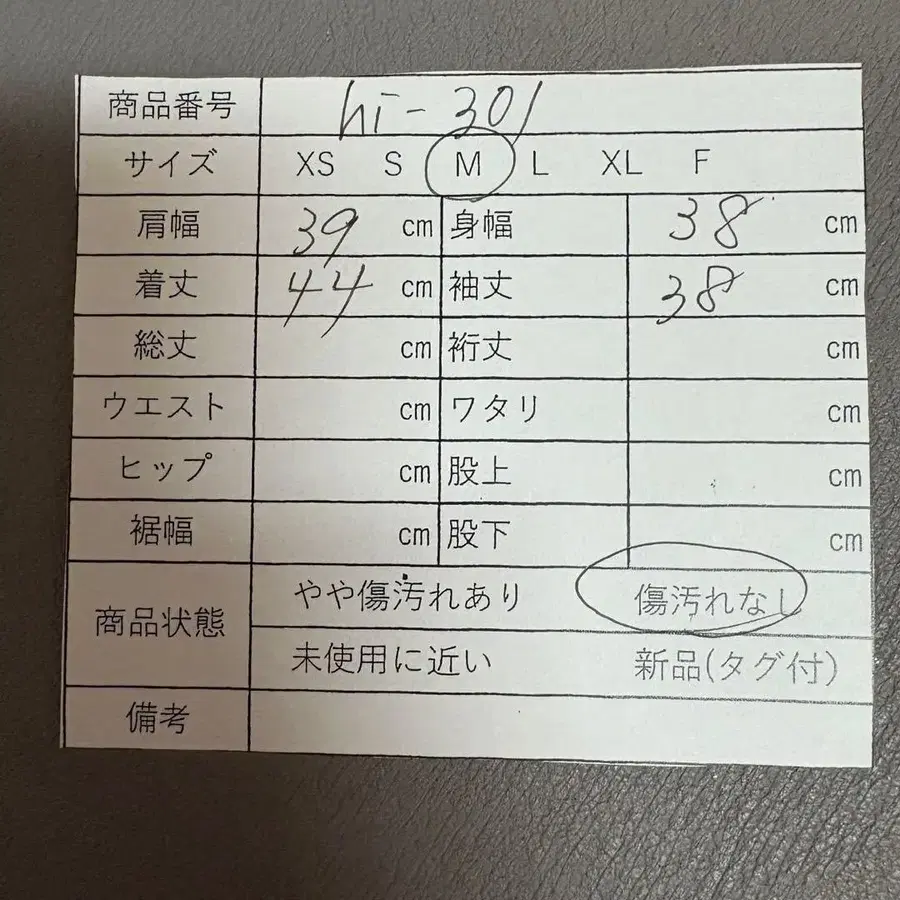 商品番号 hi-301
サイズ XS S M L XL F
肩幅 39 cm 身幅 38 cm
着丈 44 cm 袖丈 38 cm
総丈 cm 裄丈 cm
ウエスト cm ワタリ cm
ヒップ cm 股上 cm
裾幅 cm 股下 cm
商品状態 やや傷汚れあり 傷汚れなし
未使用に近い 新品(タグ付)
備考